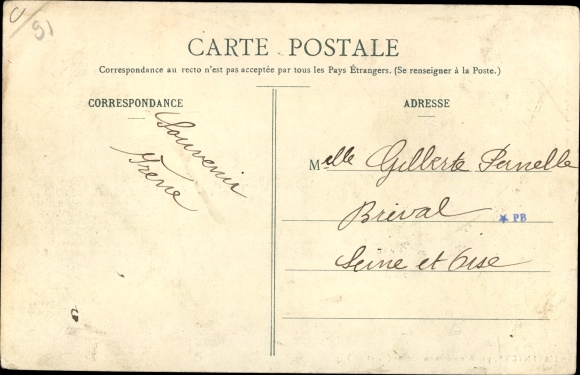 CARTE POSTALE
Correspondance au recto n'est pas acceptée par tous les Pays Étrangers. (Se renseigner à la Poste.)
CORRESPONDANCE
ADRESSE
Souvenir
Irène
Melle Gilberte Pernelle
Bréval
★ PB
Seine et Oise